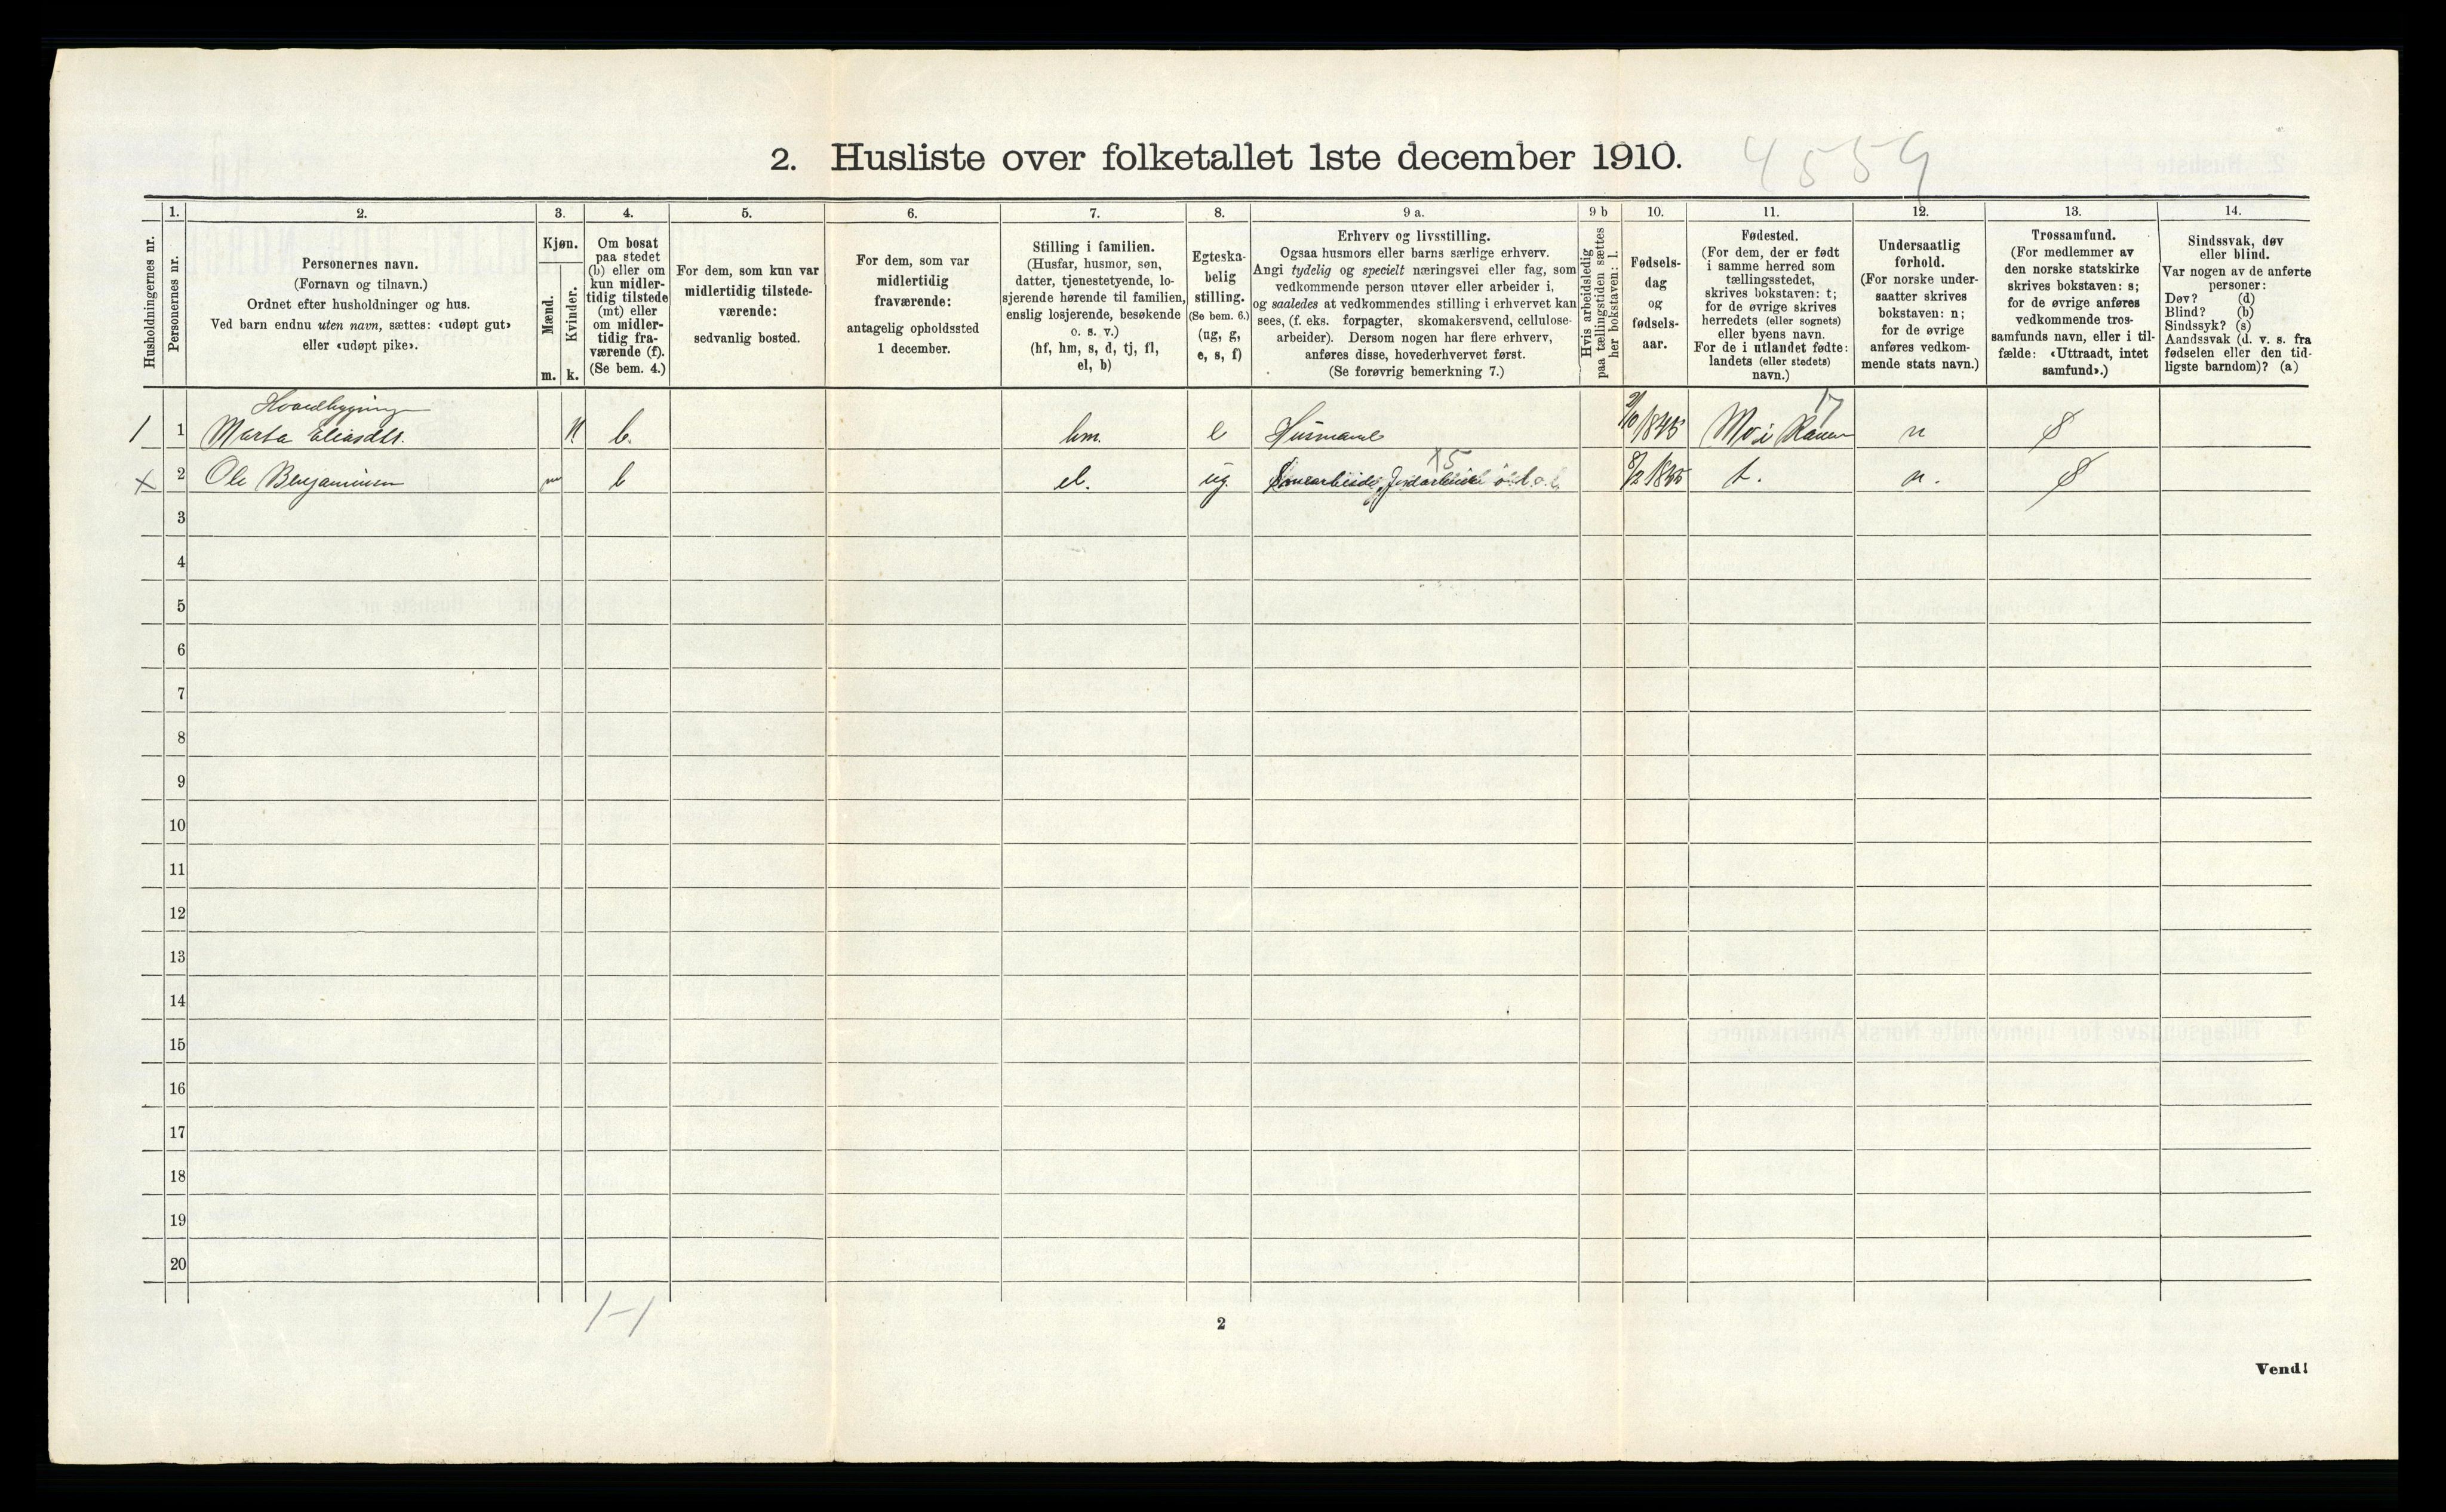 2. Husliste over folketallet 1ste december 1910.
4559
Husholdningernes nr.
1.
Personernes nr.
2.
Personernes navn.
(Fornavn og tilnavn.)
Ordnet efter husholdninger og hus.
Ved barn endnu uten navn, sættes: «udøpt gut»
eller «udøpt pike».
3.
Kjøn.
Mænd.
Kvinder.
m. k.
4.
Om bosat
paa stedet
(b) eller om
kun midler-
tidig tilstede
(mt) eller
om midler-
tidig fra-
værende (f).
(Se bem. 4.)
5.
For dem, som kun var
midlertidig tilstede-
værende:
sedvanlig bosted.
6.
For dem, som var
midlertidig
fraværende:
antagelig opholdssted
1 december.
7.
Stilling i familien.
(Husfar, husmor, søn,
datter, tjenestetyende, lo-
sjerende hørende til familien,
enslig losjerende, besøkende
o. s. v.)
(hf, hm, s, d, tj, fl,
el, b)
8.
Egteska-
belig
stilling.
(Se bem. 6.)
(ug, g,
e, s, f)
9 a.
Erhverv og livsstilling.
Ogsaa husmors eller barns særlige erhverv.
Angi tydelig og specielt næringsvei eller fag, som
vedkommende person utøver eller arbeider i,
og saaledes at vedkommendes stilling i erhvervet kan
sees, (f. eks. forpagter, skomakersvend, cellulose-
arbeider). Dersom nogen har flere erhverv,
anføres disse, hovederhvervet først.
(Se forøvrig bemerkning 7.)
9 b
Hvis arbeidsledig
paa tællingstiden sættes
her bokstaven: l.
10.
Fødsels-
dag
og
fødsels-
aar.
11.
Fødested.
(For dem, der er født
i samme herred som
tællingsstedet,
skrives bokstaven: t;
for de øvrige skrives
herredets (eller sognets)
eller byens navn.
For de i utlandet fødte:
landets (eller stedets)
navn.)
12.
Undersaatlig
forhold.
(For norske under-
saatter skrives
bokstaven: n;
for de øvrige
anføres vedkom-
mende stats navn.)
13.
Trossamfund.
(For medlemmer av
den norske statskirke
skrives bokstaven: s;
for de øvrige anføres
vedkommende tros-
samfunds navn, eller i til-
fælde: «Uttraadt, intet
samfund».)
14.
Sindssvak, døv
eller blind.
Var nogen av de anførte
personer:
Døv? (d)
Blind? (b)
Sindssyk? (s)
Aandssvak (d. v. s. fra
fødselen eller den tid-
ligste barndom)? (a)
Hovedbygning
17
1 1 Marta Eliasdtr. k b. hm. e 1845 Mo i Ranen n S
15
x 2 Ole Benjaminsen m b el. ug. t. n. S
3
4
5
6
7
8
9
10
11
12
13
14
15
16
17
18
19
20
1-1
2
Vend!